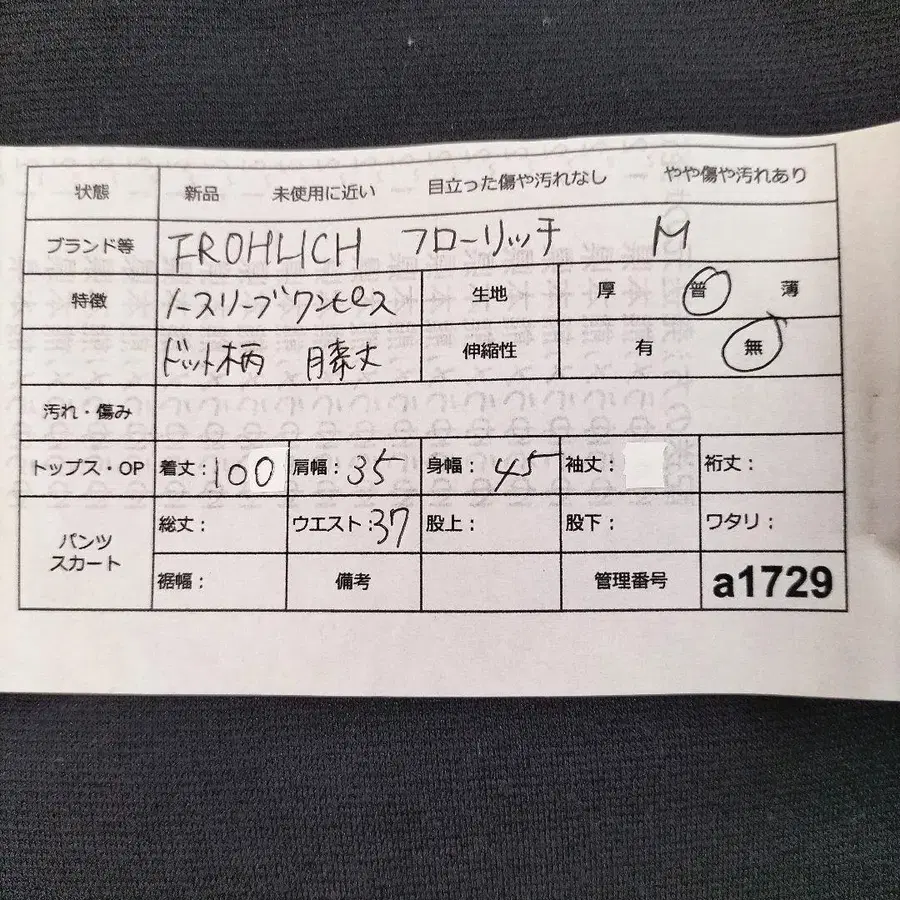 状態 新品 未使用に近い 目立った傷や汚れなし やや傷や汚れあり
ブランド等 FROHLICH フローリッチ M
特徴 ノースリーブワンピース 生地 厚 普 薄
ドット柄 膝丈 伸縮性 有 無
汚れ・傷み
トップス・OP 着丈:100 肩幅:35 身幅:45 袖丈: 裄丈:
パンツ スカート 総丈: ウエスト:37 股上: 股下: ワタリ:
裾幅: 備考 管理番号 a1729